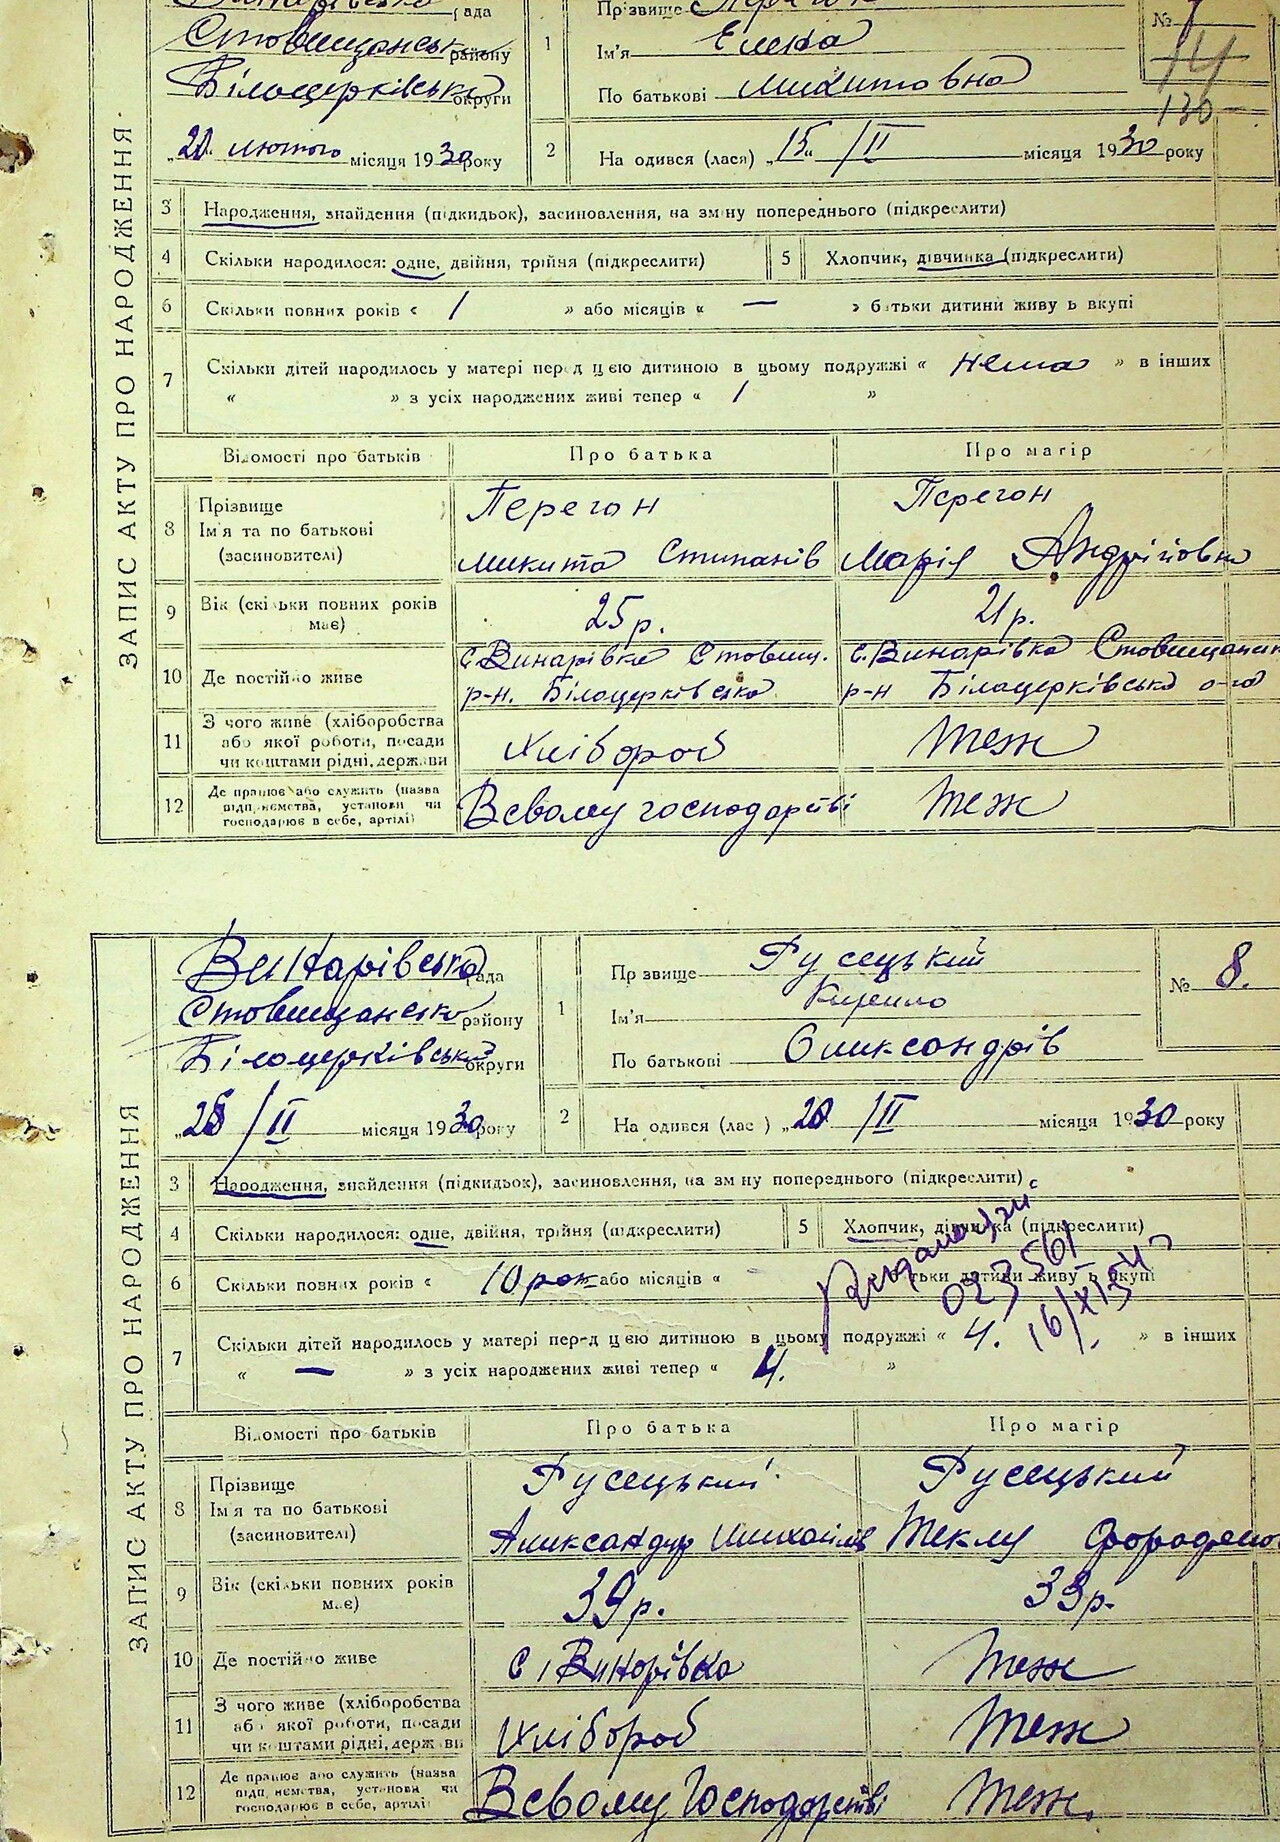 рада Прізвище
Стовищанськ району 1 Ім'я Елена № 7
Білоцерківська округи По батькові Микитовна 14
130
„20“ лютого місяця 1930 року 2 На одився (лася) „15“ /II місяця 1930 року
ЗАПИС АКТУ ПРО НАРОДЖЕННЯ
3 Народження, знайдення (підкидьок), засиновлення, на зміну попереднього (підкреслити)
4 Скільки народилося: одне, двійня, трійня (підкреслити) 5 Хлопчик, дівчинка (підкреслити)
6 Скільки повних років « 1 » або місяців « — » батьки дитини живу ь вкупі
7 Скільки дітей народилось у матері перед цією дитиною в цьому подружжі « нема » в інших
« » з усіх народжених живі тепер « 1 »
Відомості про батьків Про батька Про матір
8 Прізвище Перегон Перегон
Ім'я та по батькові
(засиновителі) Микита Стипанів Марія Андрійовна
9 Вік (скільки повних років має) 25 р. 21 р.
10 Де постійно живе с. Винарівка Стовищ. с. Винарівка Стовищанськ
р-н. Білоцерківська р-н Білоцерківська о-га
11 З чого живе (хліборобства
або якої роботи, посади Хлібороб теж
чи коштами рідні, держави
12 Де працює або служить (назва
підприємства, установи чи В свому господарстві теж
господарює в себе, артілі)
Винарівська рада Прізвище Русецький № 8.
Стовищанська району 1 Ім'я Кирило
Білоцерківська округи По батькові Оликсандрів
„28 /II місяця 1930 року 2 На одився (лас ) „20 /II місяця 1930 року
ЗАПИС АКТУ ПРО НАРОДЖЕННЯ
3 Народження, знайдення (підкидьок), засиновлення, на зміну попереднього (підкреслити)
4 Скільки народилося: одне, двійня, трійня (підкреслити) 5 Хлопчик, дівчинка (підкреслити)
023561
6 Скільки повних років « 10 рок або місяців « тьки дитини живу ь вкупі
16/XI
7 Скільки дітей народилось у матері перед цією дитиною в цьому подружжі « 4. » в інших
« — » з усіх народжених живі тепер « 4. »
Відомості про батьків Про батька Про матір
8 Прізвище Русецький Русецький
Ім'я та по батькові
(засиновителі) Александур Михайлів Теклу
9 Вік (скільки повних років має) 39 р. 33 р.
10 Де постійно живе с. Винорівка теж
11 З чого живе (хліборобства
або якої роботи, посади Хлібороб теж
чи коштами рідні, держави
12 Де працює або служить (назва
підприємства, установи чи В свому Господарстві теж.
господарює в себе, артілі)